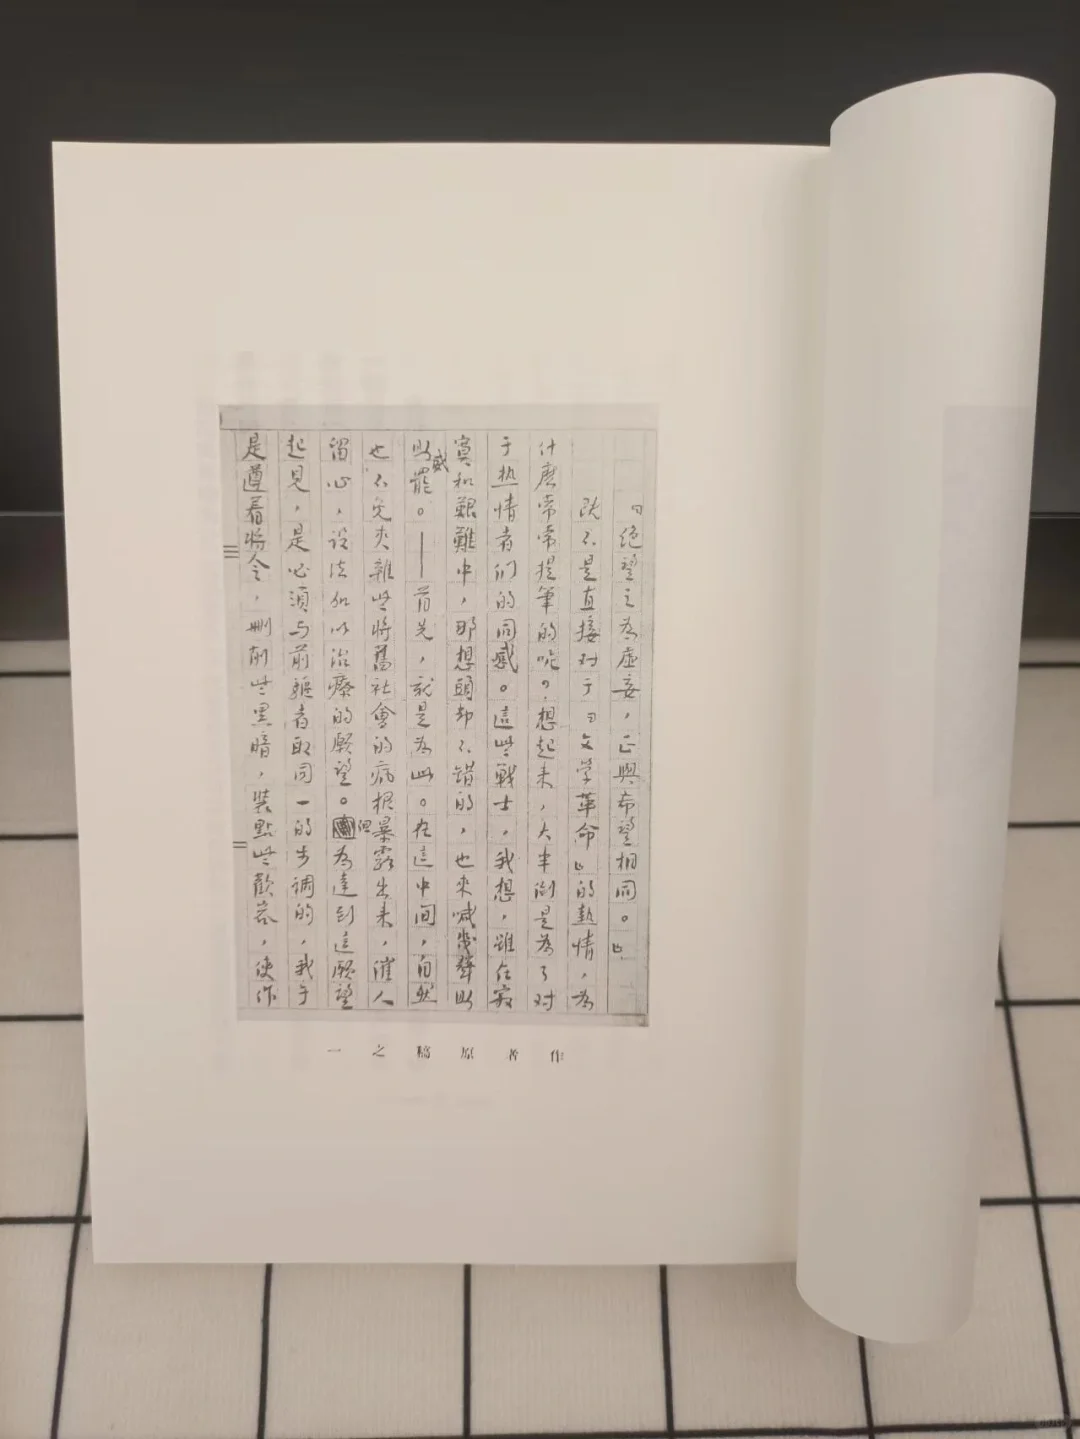 『絕望之為虛妄，正與希望相同。』
既不是直接对于『文学革命』的熱情，為
什麽常常提筆的呢？想起来，大半倒是為了对
于热情者们的同感。這些戰士，我想，雖在寂
寞和艱難中，那想頭却不錯的，也來喊幾聲助
助威罷。——首先，就是為此。在這中间，自然
也不免夾雜些將舊社會的病根暴露出来，催人
留心，设法加以治療的願望。但為達到這願望
起見，是必須与前驅者取同一的步調的，我于
是遵着將令，删削些黑暗，裝點些歡容，使作
作者原稿之一